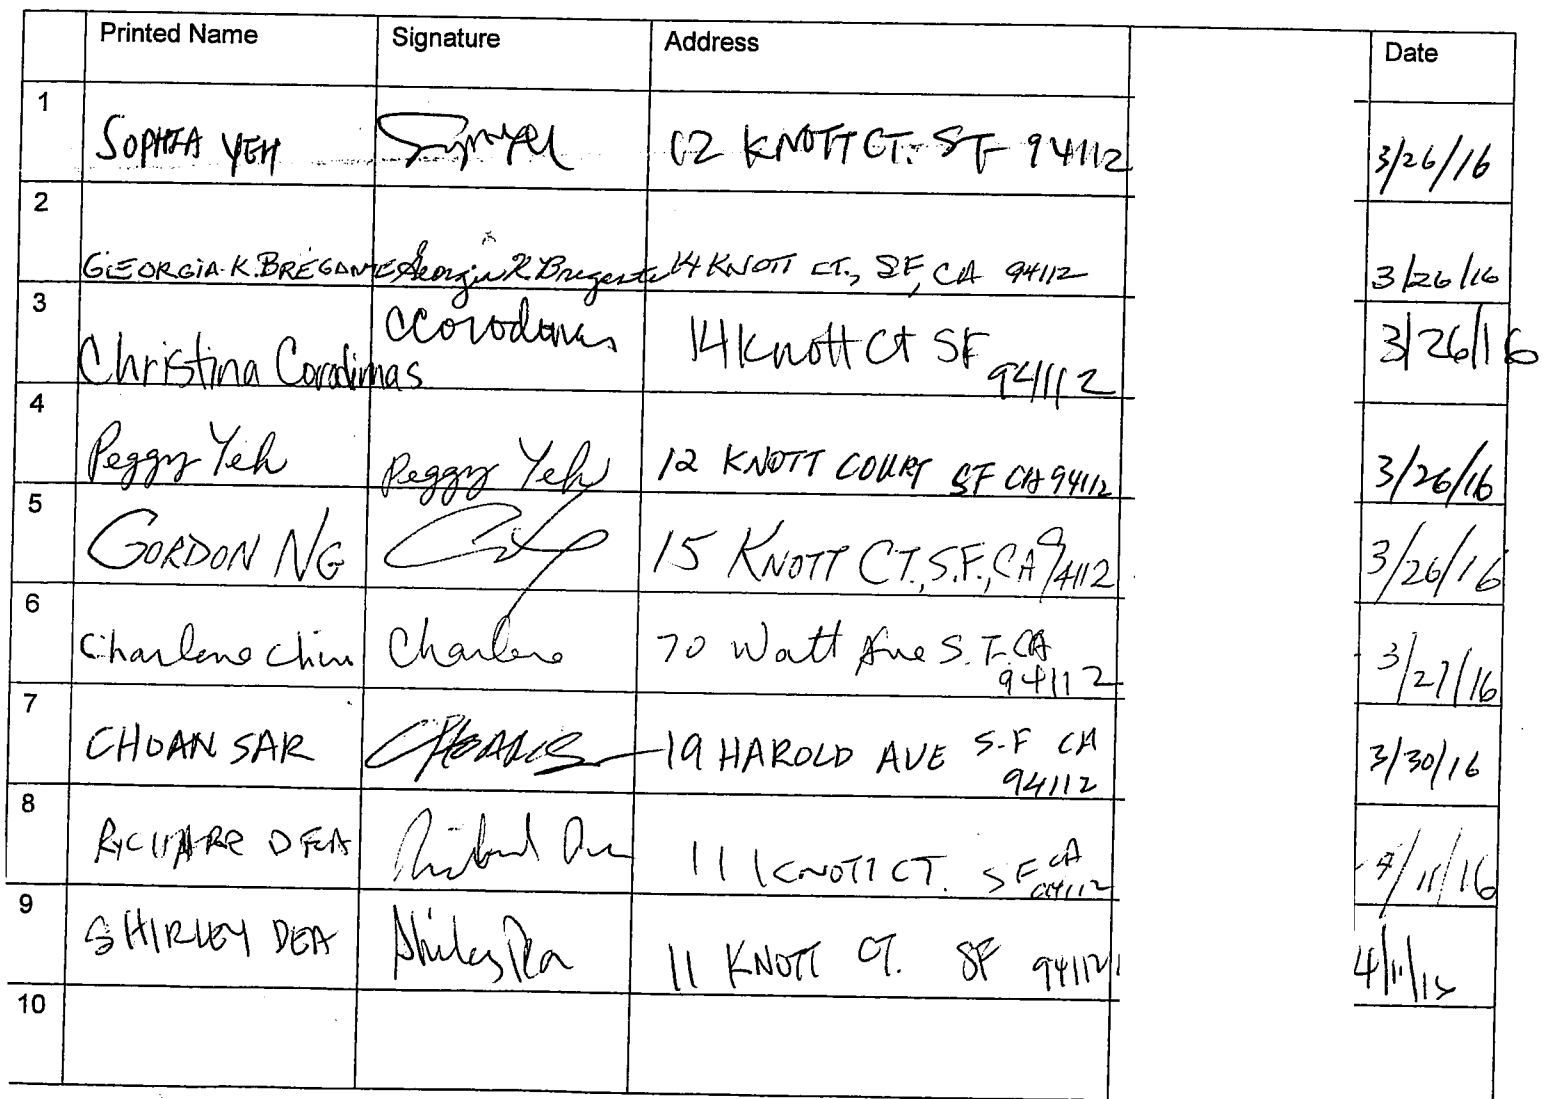 Printed Name Signature Address Date
1
SOPHIA YEH 12 KNOTT CT. SF 94112 3/26/16
2
GEORGIA K. BREGANTE Georgia K Bregante 14 KNOTT CT., SF, CA 94112 3/26/16
3
Christina Corodimas CCorodimas 14 Knott Ct SF 94112 3/26/16
4
Peggy Yeh Peggy Yeh 12 KNOTT COURT SF CA 94112 3/26/16
5
GORDON NG 15 KNOTT CT., S.F., CA 94112 3/26/16
6
Charlene Chiu Charlene 70 Watt Ave S.F. CA
94112 3/27/16
7
CHOAN SAR CHOANS 19 HAROLD AVE S.F CA
94112 3/30/16
8
RICHARD DEA Richard Dea 11 KNOTT CT. SF CA
94112 4/11/16
9
SHIRLEY DEA Shirley Dea 11 KNOTT CT. SF 94112 4/11/16
10